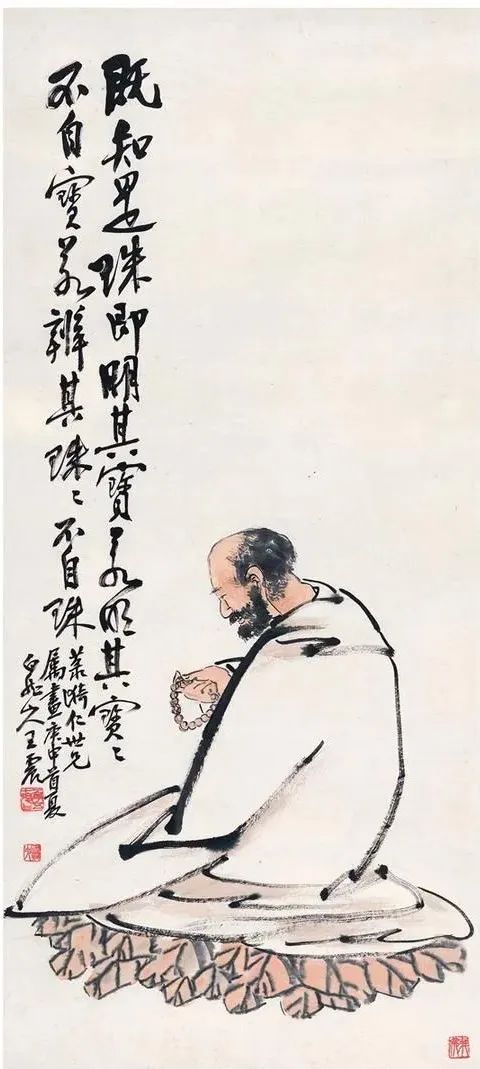 既知是珠即明其寶若明其寶〻
不自寶若辨其珠〻不自珠
仁世兄
屬畫庚申首夏
白龍山人王震